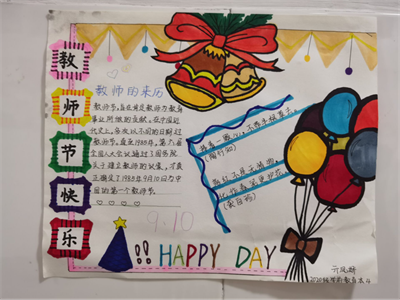 教
师
节
快
乐
教师的来历
教师节,旨在肯定教师为教育
事业所做的贡献。在中国近
代史上,多次以不同的日期过
教师节。直至1985年,第六届
全国人大会议通过了国务院
关于建立教师的议案,才真
正确定了1985年9月10日为中
国的第一个教师节
捧着一颗心来,不带半根草去。
(陶行知)
9.10
!! HAPPY DAY